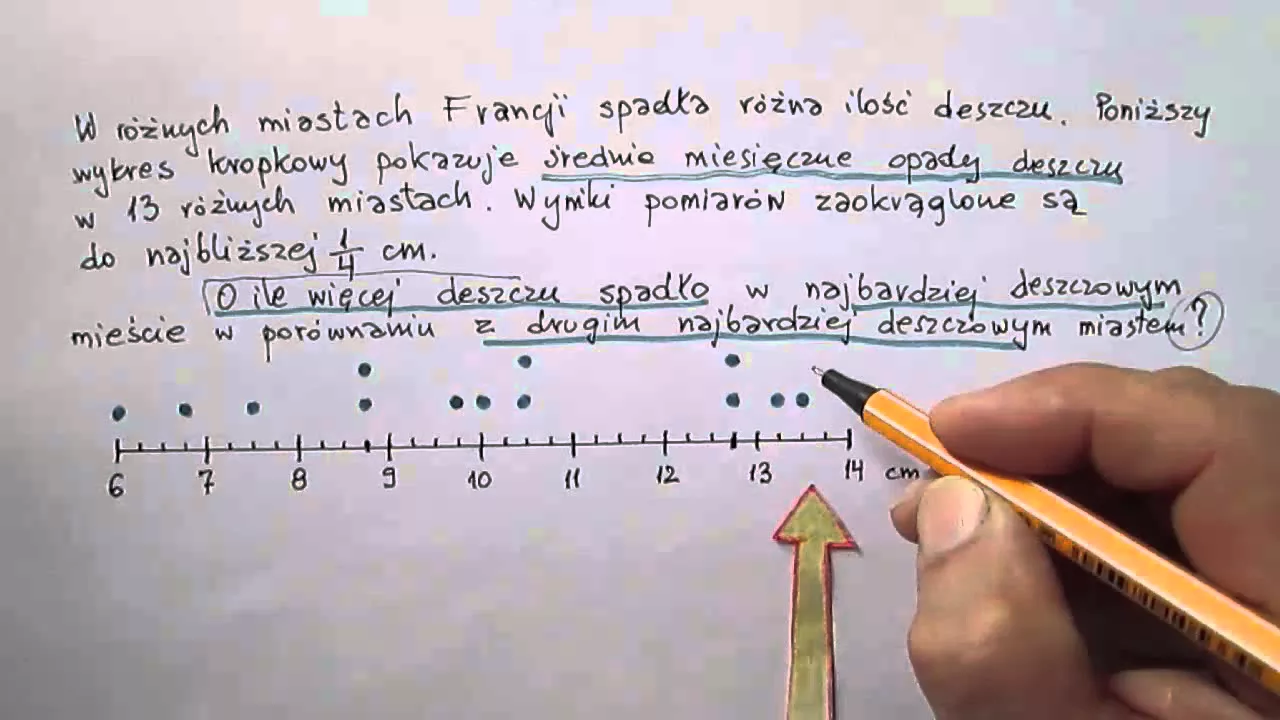 W różnych miastach Francji spadła różna ilość deszczu. Poniższy
wykres kropkowy pokazuje średnie miesięczne opady deszczu
w 13 różnych miastach. Wyniki pomiarów zaokrąglone są
do najbliższej 1/4 cm.
O ile więcej deszczu spadło w najbardziej deszczowym
mieście w porównaniu z drugim najbardziej deszczowym miastem?
6 7 8 9 10 11 12 13 14 cm